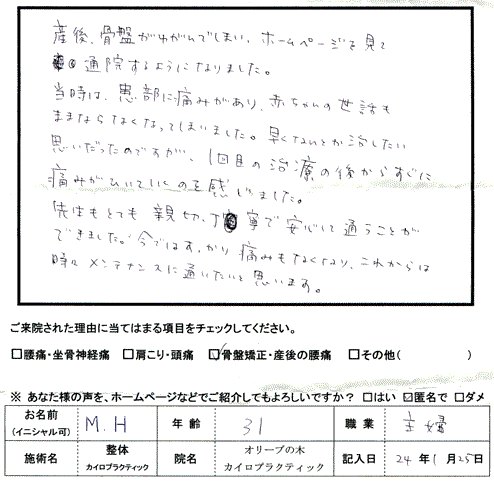 産後、骨盤がゆがんでしまい、ホームページを見て
通院するようになりました。
当時は、患部に痛みがあり、赤ちゃんの世話も
ままならなくなってしまいました。早くなんとか治したい
思いだったのですが、1回目の治療の後からすぐに
痛みがひいていくのを感じました。
先生もとても親切、丁寧で安心して通うことが
できました。今ではすっかり痛みもなくなり、これからは
時々メンテナンスに通いたいと思います。
ご来院された理由に当てはまる項目をチェックしてください。
□腰痛・坐骨神経痛 □肩こり・頭痛 ☑骨盤矯正・産後の腰痛 □その他( )
※ あなた様の声を、ホームページなどでご紹介してもよろしいですか？ □はい ☑匿名で □ダメ
お名前 (イニシャル可) M.H 年齢 31 職業 主婦
施術名 整体 カイロプラクティック 院名 オリーブの木 カイロプラクティック 記入日 24年1月25日